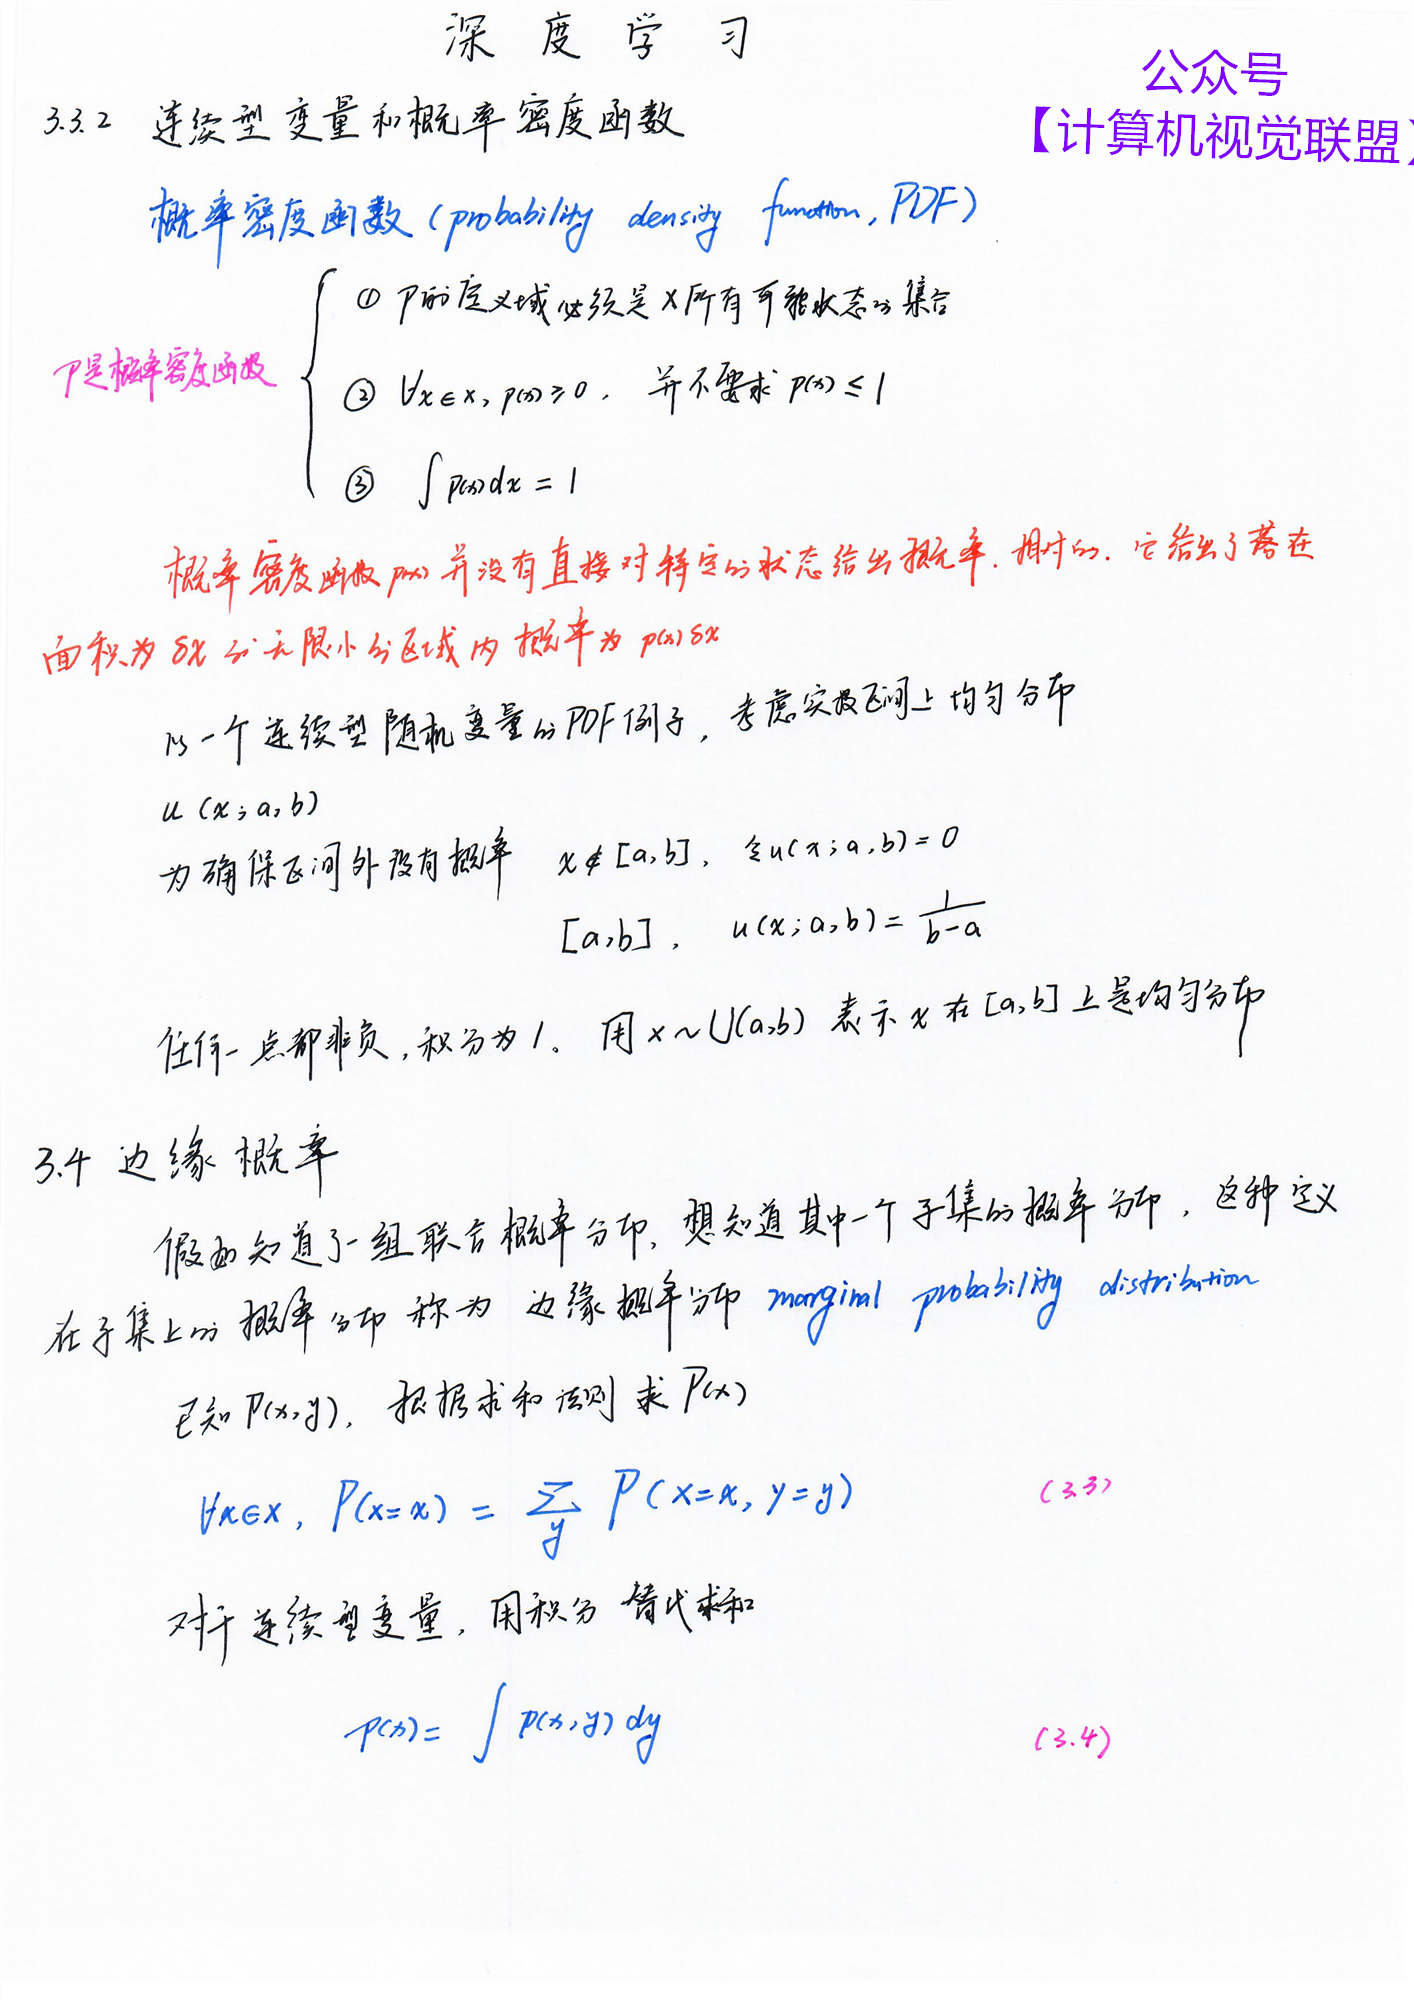 深度学习
公众号
【计算机视觉联盟】
3.3.2 连续型变量和概率密度函数
概率密度函数(probability density function, PDF)
① P的定义域必须是x所有可能状态的集合
P是概率密度函数
② ∀x∈x, p(x)≥0, 并不要求 p(x)≤1
③ ∫p(x)dx = 1
概率密度函数p(x)并没有直接对特定的状态给出概率. 相对的. 它给出了落在
面积为δx的无限小的区域内概率为p(x)δx
以一个连续型随机变量的PDF例子, 考虑实数区间上均匀分布
u(x; a, b)
为确保区间外没有概率 x∉[a,b], 令u(x; a, b)=0
[a,b], u(x; a, b)= 1/(b-a)
任何一点都非负, 积分为1。用x~U(a,b) 表示x在[a,b]上是均匀分布
3.4 边缘概率
假如知道了一组联合概率分布, 想知道其中一个子集的概率分布, 这种定义
在子集上的概率分布称为 边缘概率分布 marginal probability distribution
已知P(x,y), 根据求和法则求P(x)
∀x∈x, P(x=x) = ∑y P(x=x, y=y) (3.3)
对于连续型变量, 用积分替代求和
p(x)= ∫p(x,y)dy (3.4)